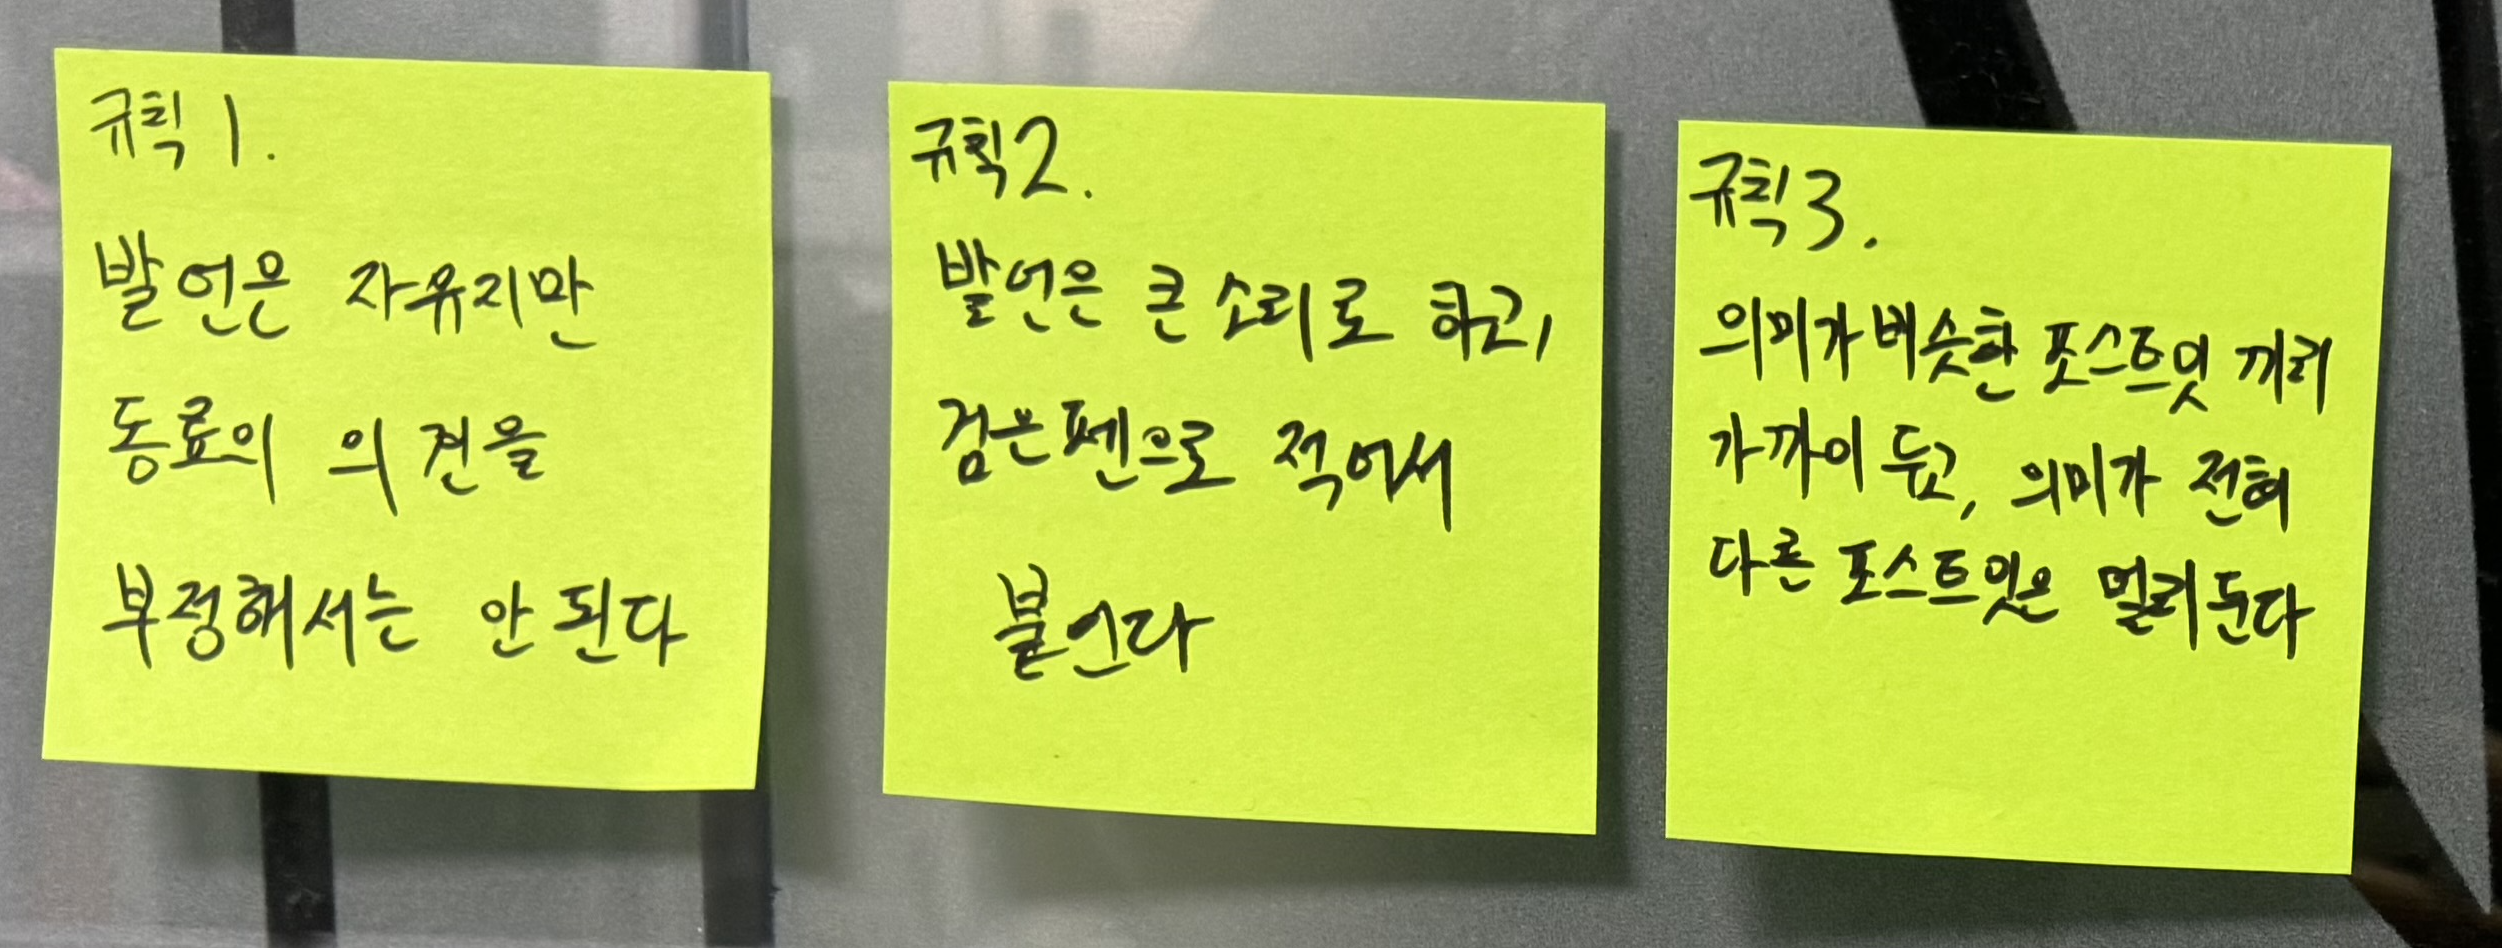 규칙 1.
발언은 자유지만
동료의 의견을
부정해서는 안 된다
규칙2.
발언은 큰 소리로 하고,
검은펜으로 적어서
붙인다
규칙3.
의미가 비슷한 포스트잇 끼리
가까이 두고, 의미가 전혀
다른 포스트잇은 멀리 둔다